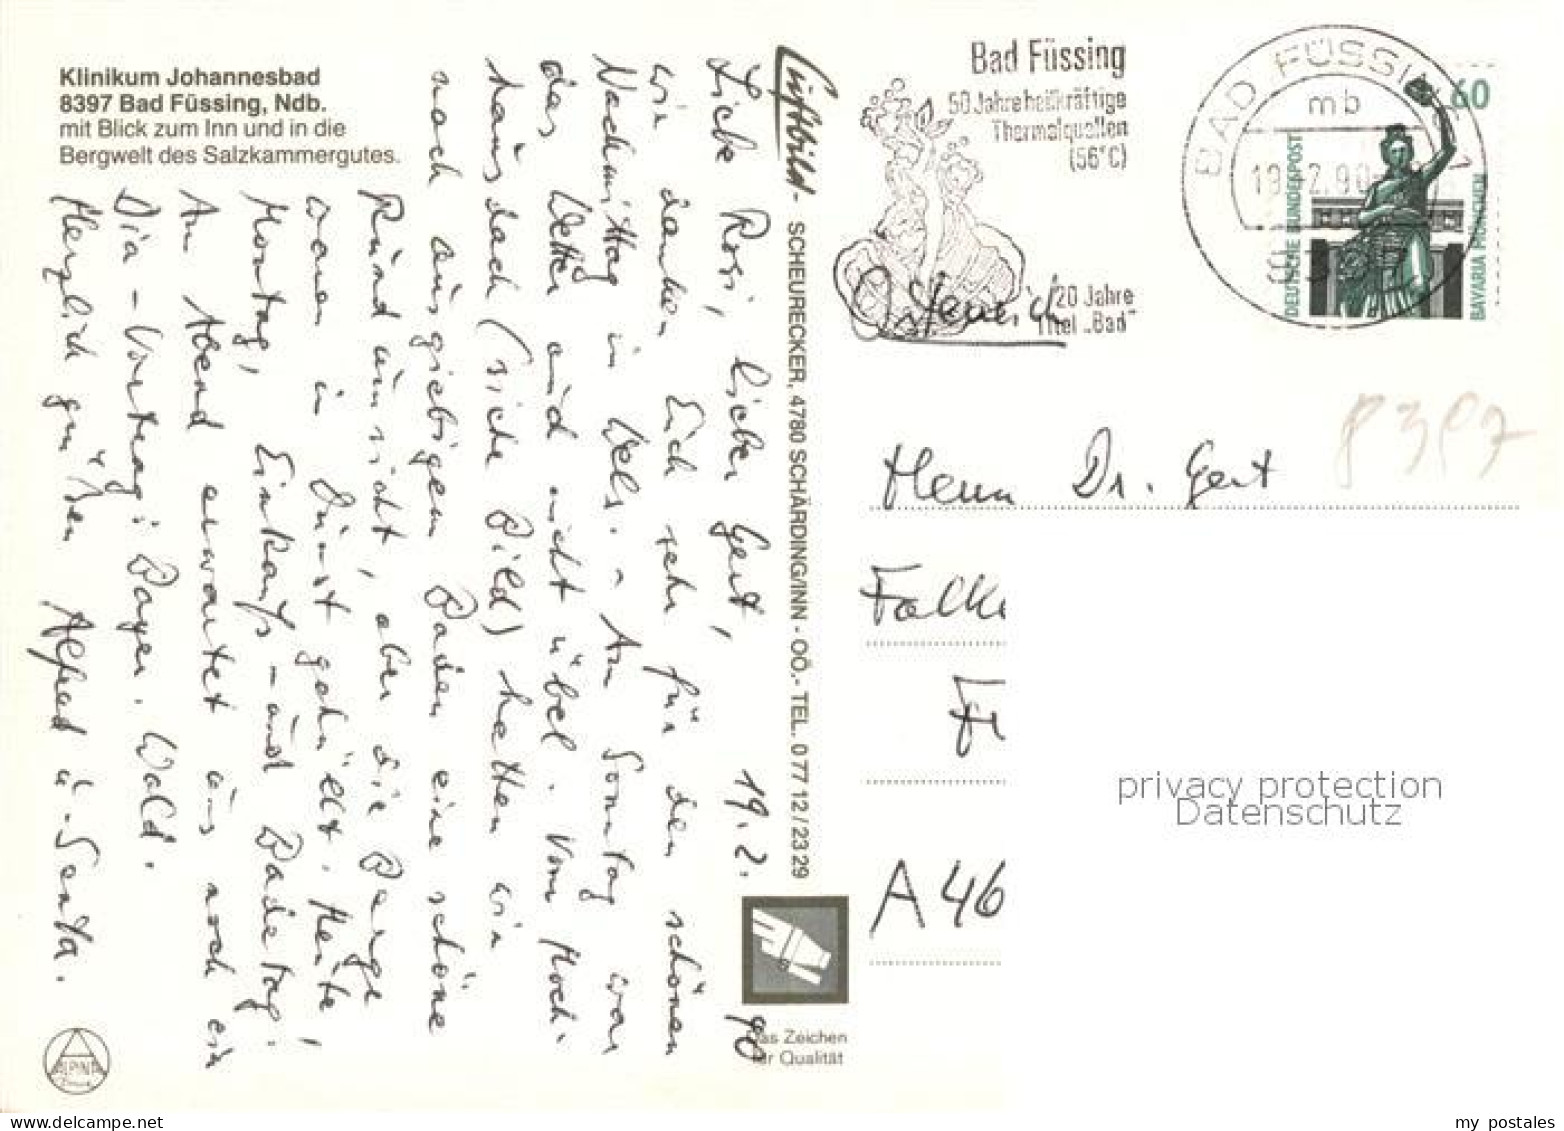 Klinikum Johannesbad
8397 Bad Füssing, Ndb.
mit Blick zum Inn und in die
Bergwelt des Salzkammergutes.
19.2.90
Liebe Rosi, lieber Gert,
wir danken Euch sehr für den schönen
Nachmittag in Wels. – Am Sonntag war
das Wetter auch nicht übel. Vom Hoch-
hausdach (siehe Bild) hatten wir
nach ausgiebigem Baden eine schöne
Rundumsicht, aber die Berge
waren in Dunst gehüllt. Heute,
Montag, Einkaufs- und Badetag.
Am Abend erwartet uns noch ein
Dia-Vortrag: Bayer. Wald.
Herzlich grüßen Alfred u.
Luftbild - SCHEURECKER, 4780 SCHÄRDING/INN - OÖ.- TEL. 0 77 12 / 23 29
Das Zeichen
für Qualität
ALPINA
Bad Füssing
50 Jahre heilkräftige
Thermalquellen
(56°C)
20 Jahre
Titel „Bad"
BAD FÜSSING 1
mb
19.-2.90
8397
60
DEUTSCHE BUNDESPOST
BAVARIA MÜNCHEN
Österreich
8397
Herrn Dr. Gert
Falke
A 46
privacy protection
Datenschutz
www.delcampe.net
my postales